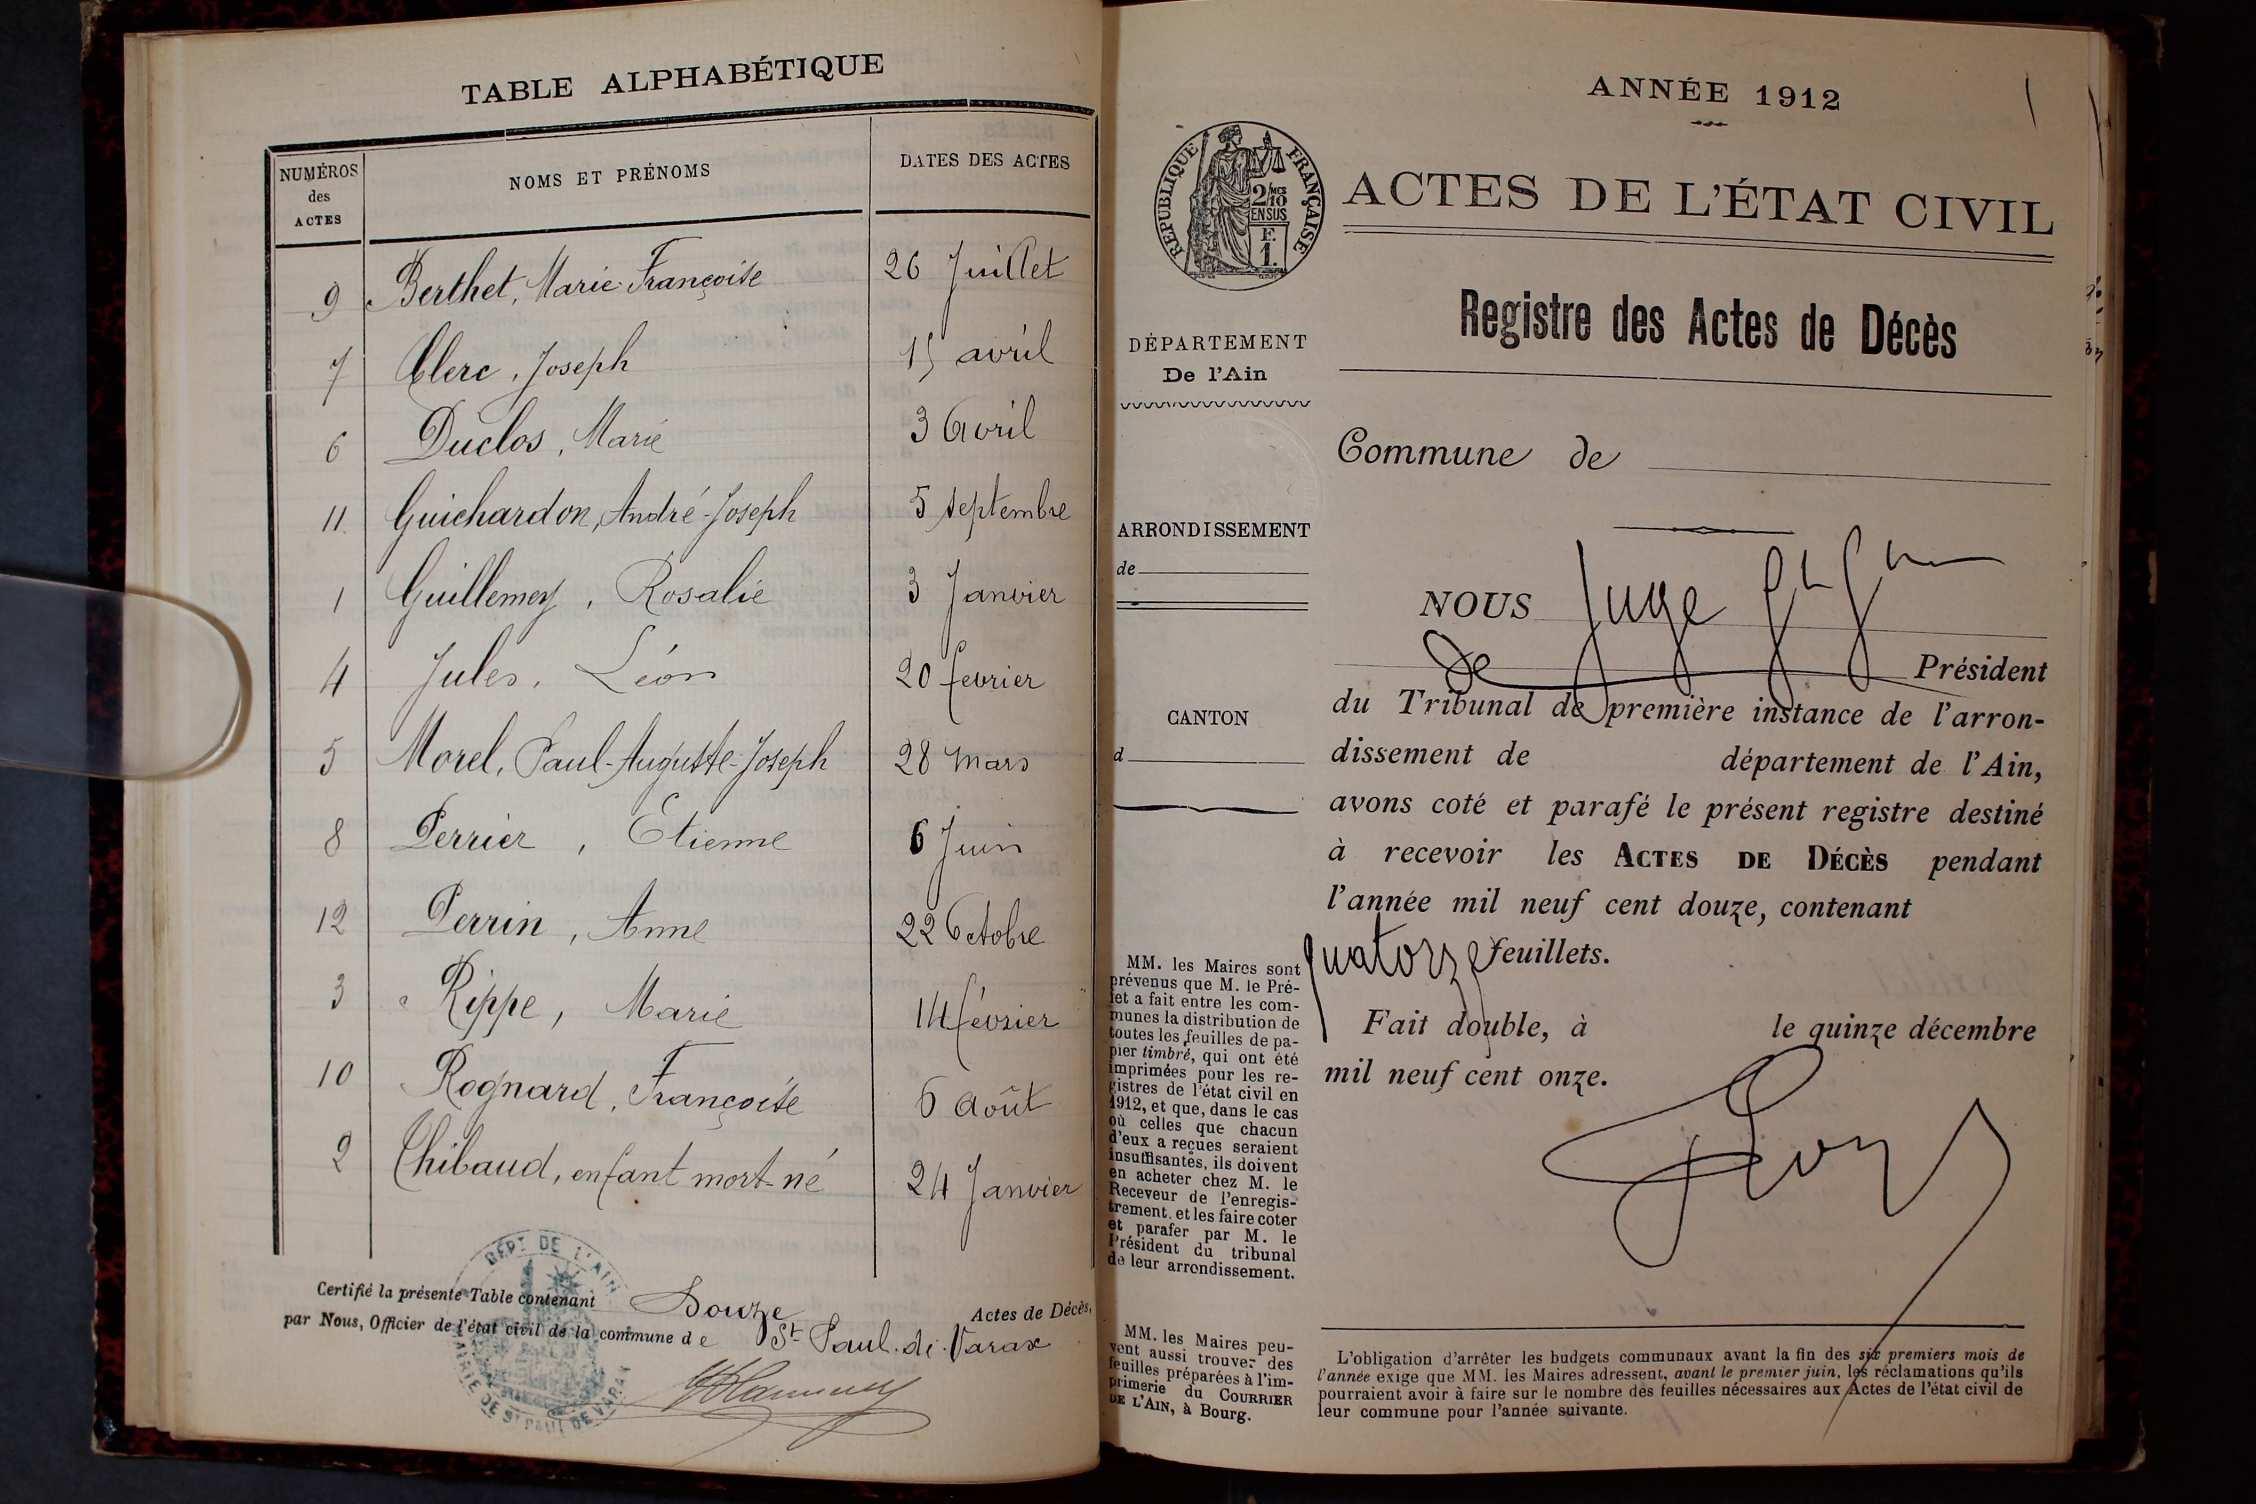 TABLE ALPHABÉTIQUE
NUMÉROS des ACTES NOMS ET PRÉNOMS DATES DES ACTES
9 Berthet, Marie Françoise 26 Juillet
7 Clerc, Joseph 15 avril
6 Duclos, Marie 3 Avril
11 Guichardon, André-Joseph 5 septembre
1 Guillemey, Rosalie 3 Janvier
4 Jules, Léon 20 fevrier
5 Morel, Paul-Auguste-Joseph 28 mars
8 Perrier, Etienne 6 Juin
12 Perrin, Anne 22 Octobre
3 Rippe, Marie 14 février
10 Rognard, Françoise 6 Août
2 Thibaud, enfant mort-né 24 Janvier
Certifié la présente Table contenant Douze Actes de Décès,
par Nous, Officier de l'état civil de la commune de St Paul-de-Varax
DÉPT DE L'AIN
MAIRIE DE ST PAUL DE VARAX
ANNÉE 1912
RÉPUBLIQUE FRANÇAISE
2/10 MES
EN SUS
F.
1.
ACTES DE L'ÉTAT CIVIL
Registre des Actes de Décès
DÉPARTEMENT
De l'Ain
Commune de
ARRONDISSEMENT
de
NOUS Juge
de Président
du Tribunal de première instance de l'arron-
CANTON
d
dissement de département de l'Ain,
avons coté et parafé le présent registre destiné
à recevoir les ACTES DE DÉCÈS pendant
l'année mil neuf cent douze, contenant
quatorze feuillets.
Fait double, à le quinze décembre
mil neuf cent onze.
MM. les Maires sont
prévenus que M. le Pré-
fet a fait entre les com-
munes la distribution de
toutes les feuilles de pa-
pier timbré, qui ont été
imprimées pour les re-
gistres de l'état civil en
1912, et que, dans le cas
où celles que chacun
d'eux a reçues seraient
insuffisantes, ils doivent
en acheter chez M. le
Receveur de l'enregis-
trement, et les faire coter
et parafer par M. le
Président du tribunal
de leur arrondissement.
MM. les Maires peu-
vent aussi trouver des
feuilles préparées à l'im-
primerie du COURRIER
DE L'AIN, à Bourg.
L'obligation d'arrêter les budgets communaux avant la fin des six premiers mois de
l'année exige que MM. les Maires adressent, avant le premier juin, les réclamations qu'ils
pourraient avoir à faire sur le nombre des feuilles nécessaires aux Actes de l'état civil de
leur commune pour l'année suivante.